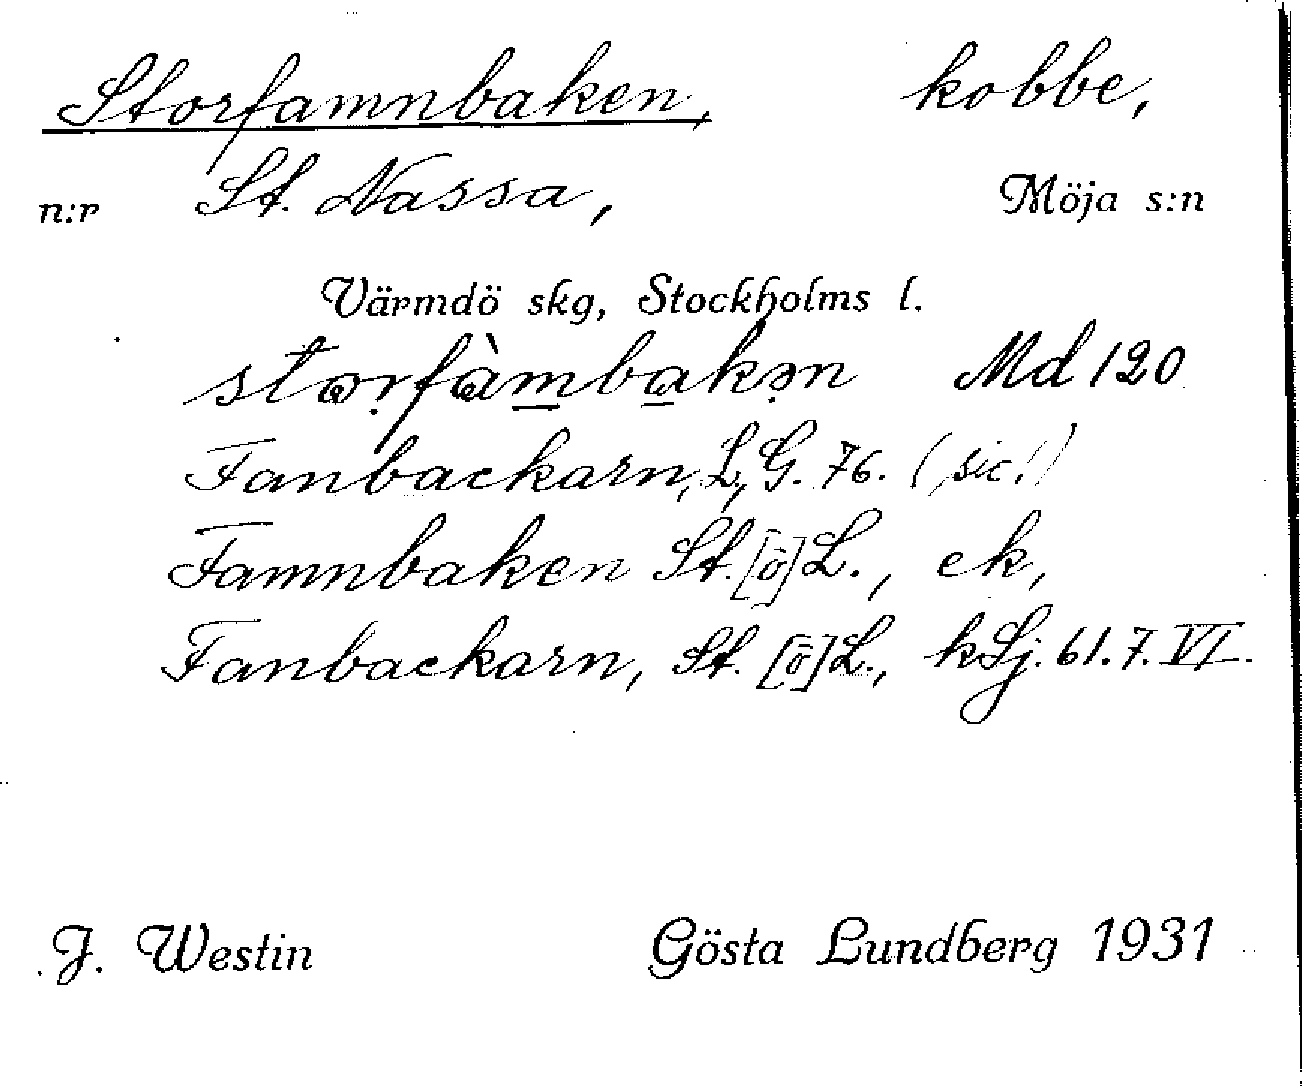 Storfamnbaken, kobbe,
n:r St. Nassa, Möja s:n
Värmdö skg, Stockholms l.
stor̥fàmbakən Md 120
Fanbackarn, L, G. 76. (sic!)
Famnbaken St. [ö] L., ek,
Fanbackarn, St. [ö] L., kSj. 61. 7. VI.
J. Westin Gösta Lundberg 1931